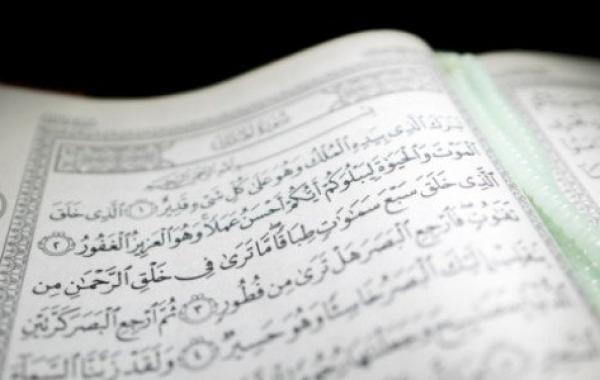 سُورَةُ الْمُلْكِ
تَبَٰرَكَ ٱلَّذِى بِيَدِهِ ٱلْمُلْكُ وَهُوَ عَلَىٰ كُلِّ شَىْءٍ قَدِيرٌ ١ ٱلَّذِى خَلَقَ
ٱلْمَوْتَ وَٱلْحَيَوٰةَ لِيَبْلُوَكُمْ أَيُّكُمْ أَحْسَنُ عَمَلًا وَهُوَ ٱلْعَزِيزُ ٱلْغَفُورُ ٢
ٱلَّذِى خَلَقَ سَبْعَ سَمَٰوَٰتٍ طِبَاقًا مَّا تَرَىٰ فِى خَلْقِ ٱلرَّحْمَٰنِ مِن
تَفَٰوُتٍ فَٱرْجِعِ ٱلْبَصَرَ هَلْ تَرَىٰ مِن فُطُورٍ ٣ ثُمَّ ٱرْجِعِ ٱلْبَصَرَ كَرَّتَيْنِ
يَنقَلِبْ إِلَيْكَ ٱلْبَصَرُ خَاسِئًا وَهُوَ حَسِيرٌ ٤ وَلَقَدْ زَيَّنَّا ٱلسَّمَآءَ